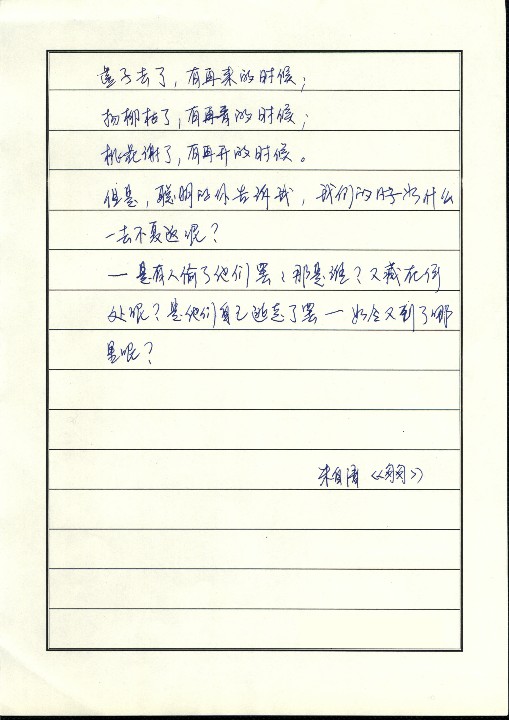 燕子去了，有再来的时候；
杨柳枯了，有再青的时候；
桃花谢了，有再开的时候。
但是，聪明的你告诉我，我们的日子为什么
一去不复返呢？
—是有人偷了他们罢：那是谁？又藏在何
处呢？是他们自己逃走了罢—如今又到了哪
里呢？
朱自清《匆匆》